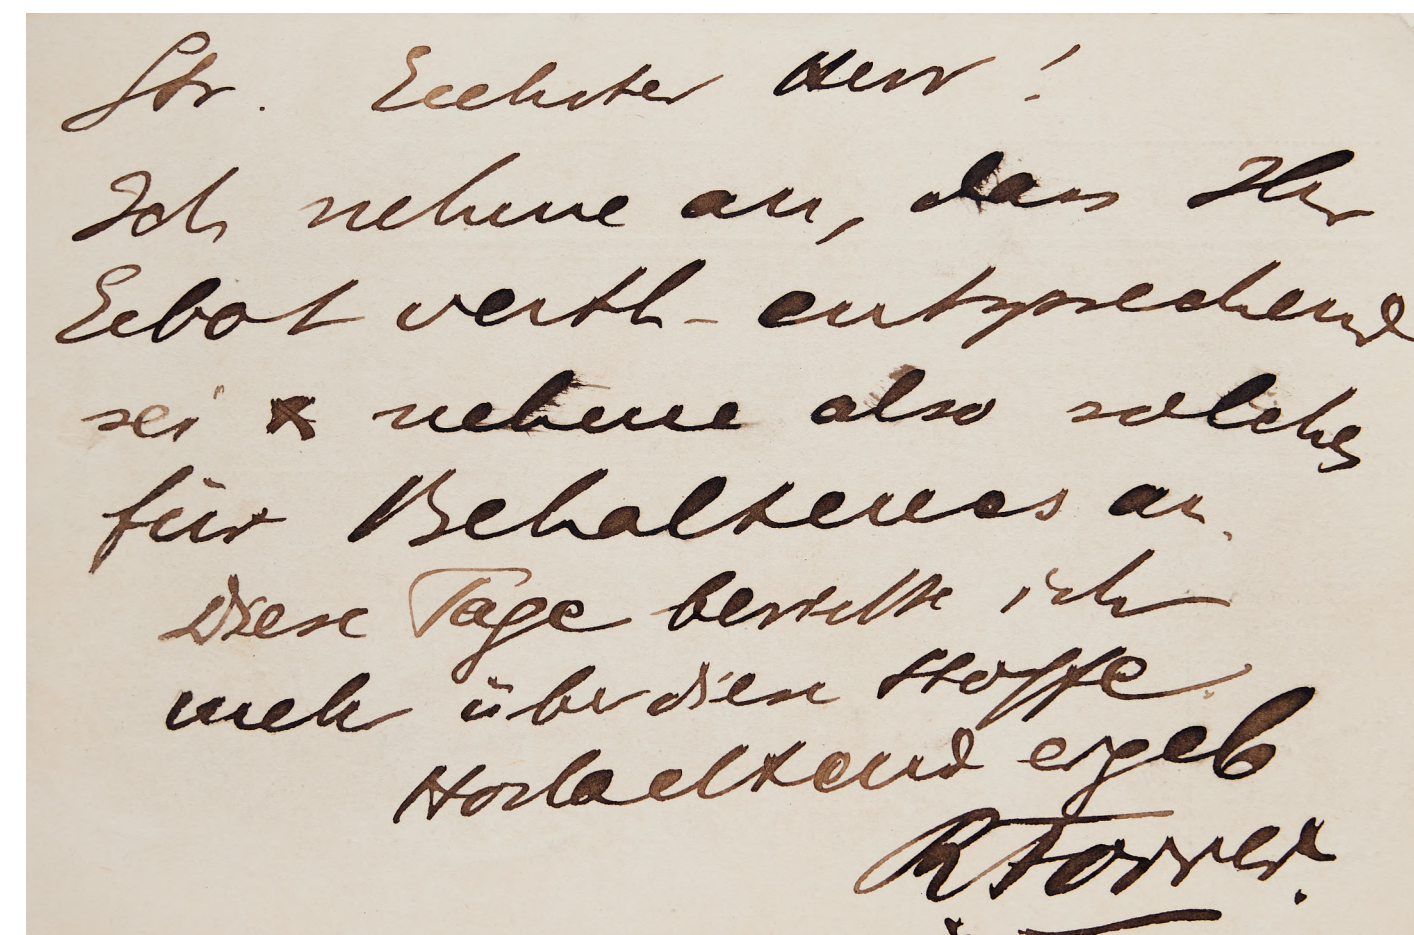 Geehrter Herr!
Ich nehme an, dass Ihr
Gebot werth-entsprechend
sei & nehme also solches
für Behaltenes an.
Diese Tage berichte ich
mehr über diese Stoffe.
Hochachtend ergeb
R Forrer.